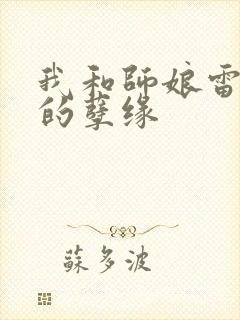 我和師娘雷
的孽缘
蘇多波